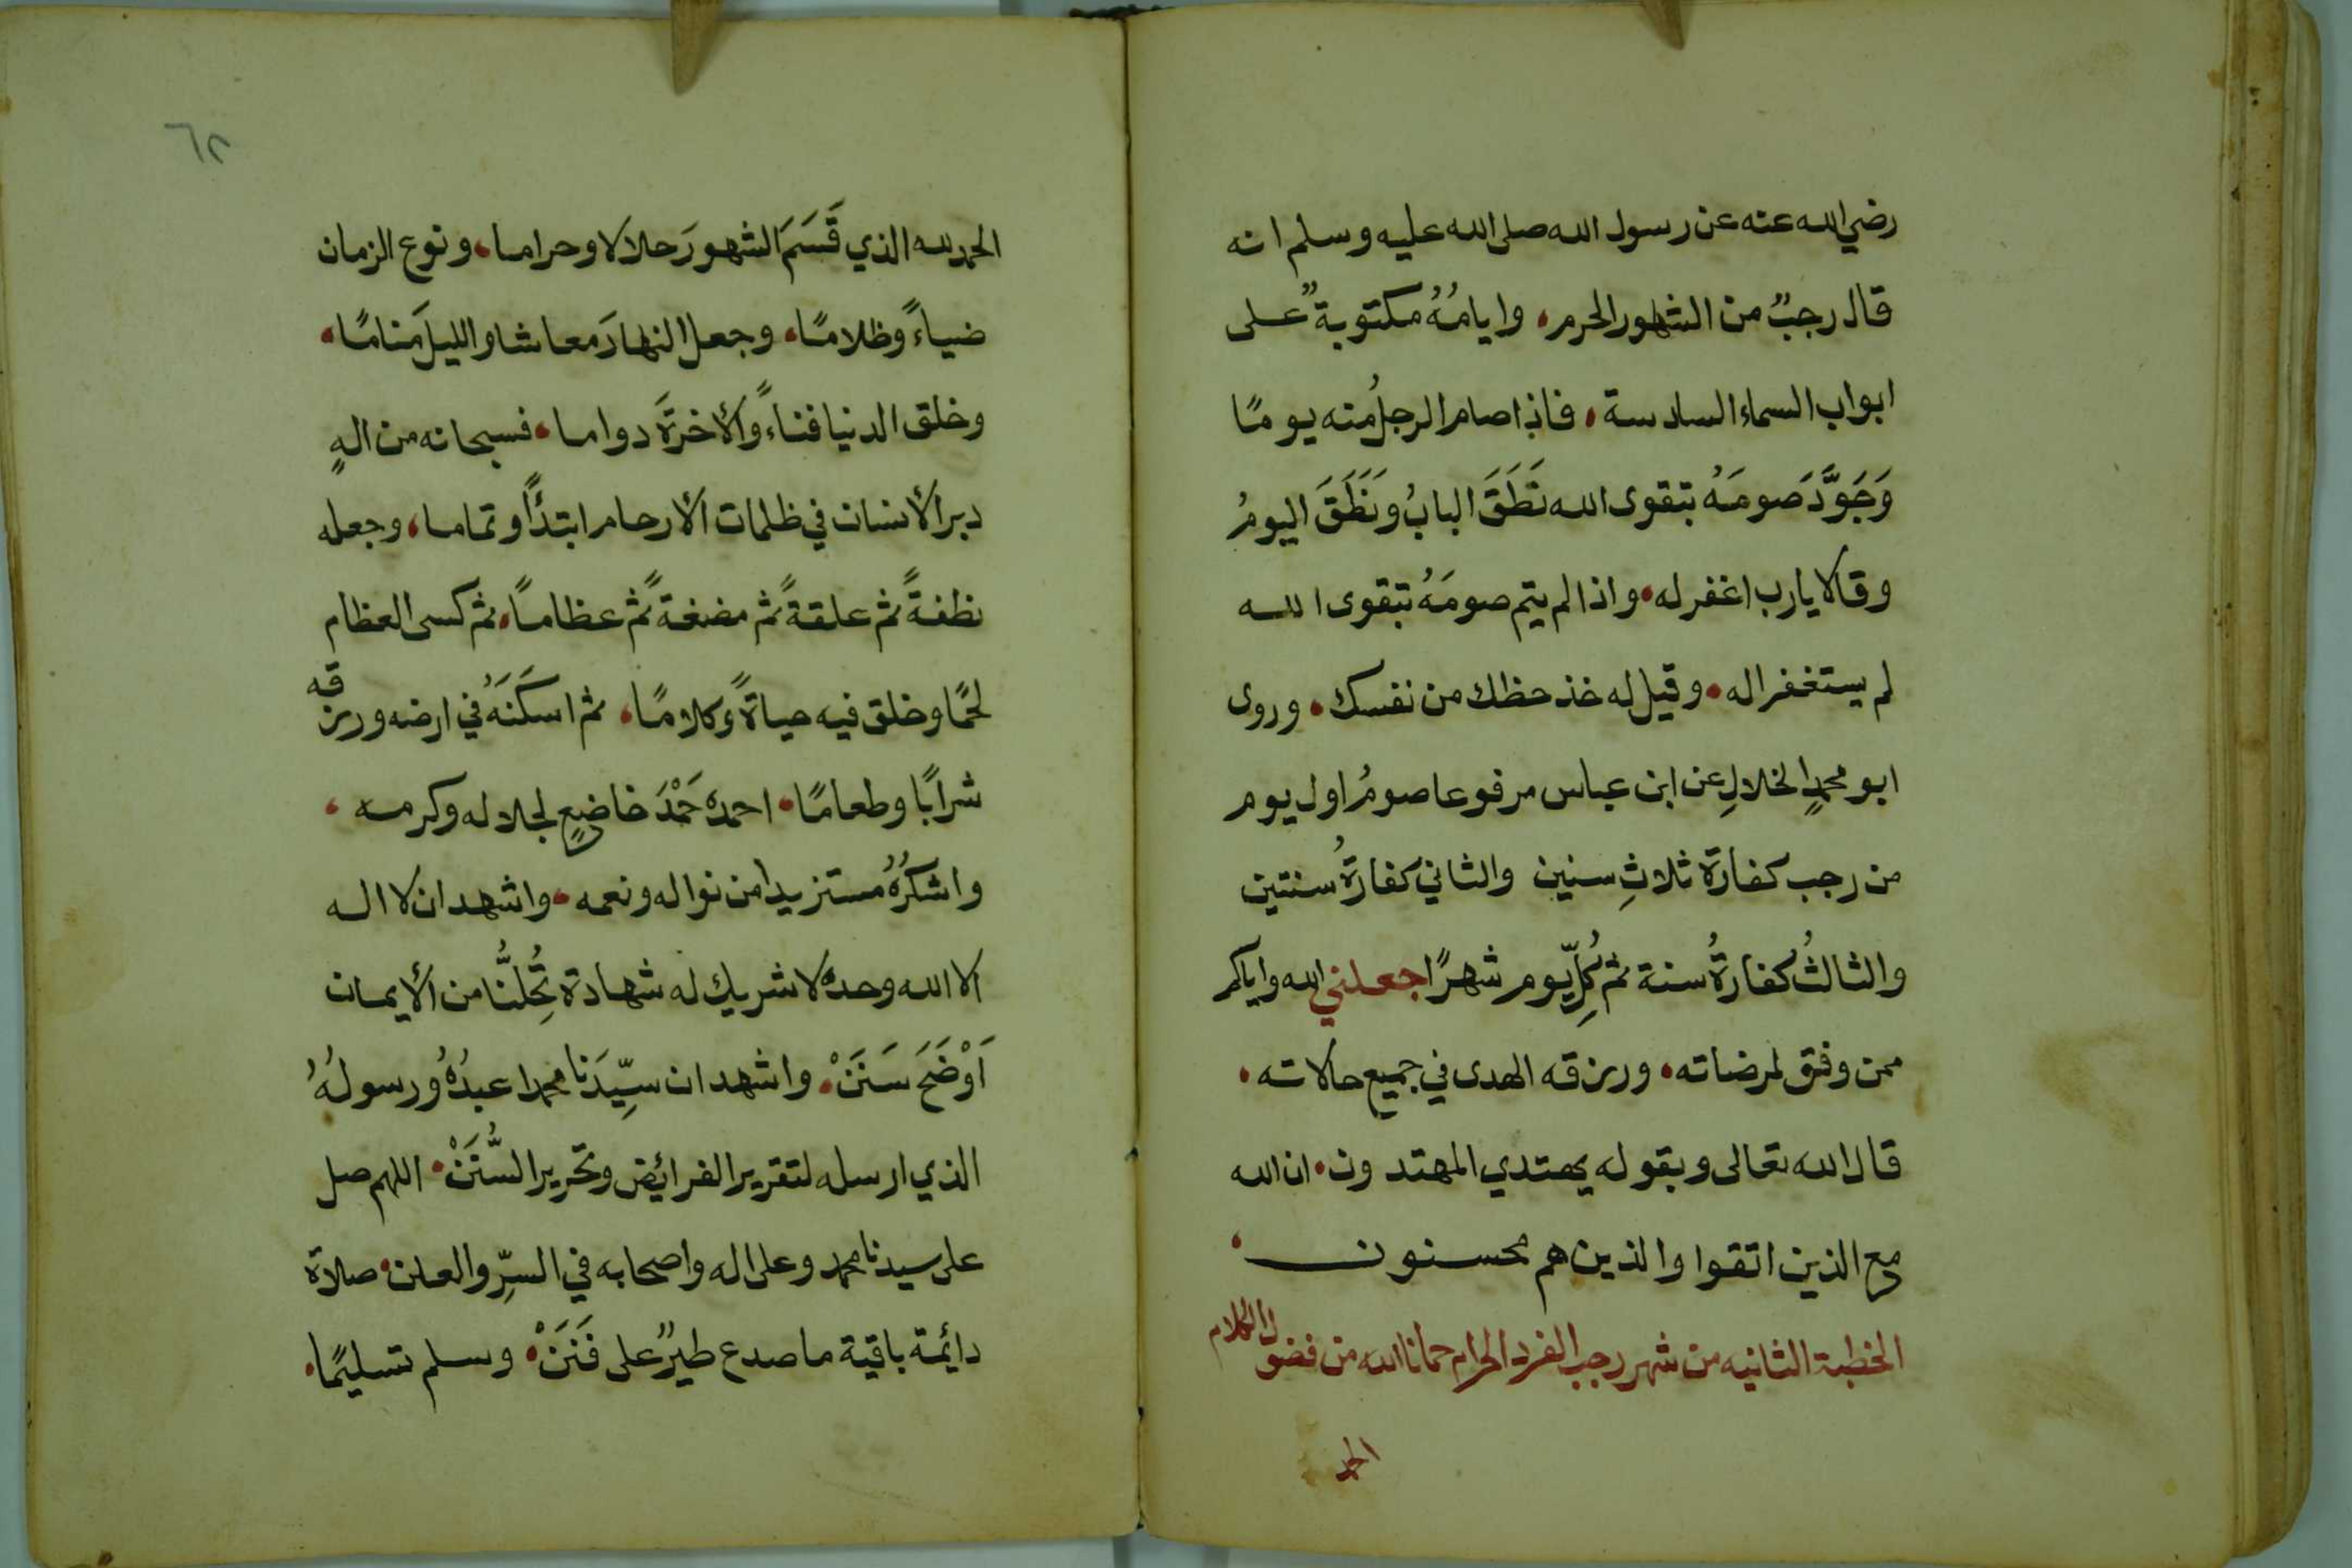 رضي الله عنه عن رسول الله صلى الله عليه وسلم انه
قال رجبٌ من الشهور الحرم، وايامُهُ مكتوبةٌ على
ابواب السماء السادسة، فاذا صام الرجلُ منه يومًا
وَجَوَّدَ صومَهُ بتقوى الله نَطَقَ البابُ ونَطَقَ اليومُ
وقالا يارب اغفر له، واذا لم يتم صومَهُ بتقوى الله
لم يستغفرا له، وقيل له خذ حظك من نفسك، وروى
ابو محمدٍ الخلالِ عن ابن عباس مرفوعا صومُ اول يوم
من رجب كفارة ثلاثِ سنين والثاني كفارةُ سنتين
والثالثُ كفارةُ سنة ثم كُلِّ يوم شهرًا جعلني الله واياكم
ممن وفق لمرضاته، ورزقه الهدى في جميع حالاته،
قال الله تعالى وبقوله يهتدي المهتدون، ان الله
مع الذين اتقوا والذين هم محسنون،
الخطبة الثانيه من شهر رجب الفرد الحرام حمانا الله من فضول الكلام
الحمد
٦٢
الحمد لله الذي قَسَمَ الشهورَ حلالا وحراما، ونوع الزمان
ضياءً وظلامًا، وجعل النهارَ معاشا والليلَ منامًا،
وخلق الدنيا فناءً والأخرةَ دواما، فسبحانه من الهٍ
دبر الأنسان في ظلمات الأرحام ابتدأً وتماما، وجعله
نطفةً ثم علقةً ثم مضغةً ثم عظاماً، ثم كسى العظام
لحمًا وخلق فيه حياةً وكلامًا، ثم اسكَنَهُ في ارضه ورزقه
شرابًا وطعامًا، احمده حَمْدَ خاضعٍ لجلاله وكرمه،
واشكرُهُ مستزيدا من نواله ونعمه، واشهد ان لا اله
الا الله وحده لا شريك له شهادة تُحِلُّنا من الأيمان
اَوْضَحَ سَنَنْ، واشهد ان سيِّدَنا محمدا عبدُهُ ورسولُهُ
الذي ارسله لتقرير الفرائض وتحرير السُّنَنْ، اللهم صل
على سيدنا محمد وعلى اله واصحابه في السرِّ والعلن، صلاة
دائمة باقية ما صدع طيرٌ على فَنَنْ، وسلم تسليمًا،